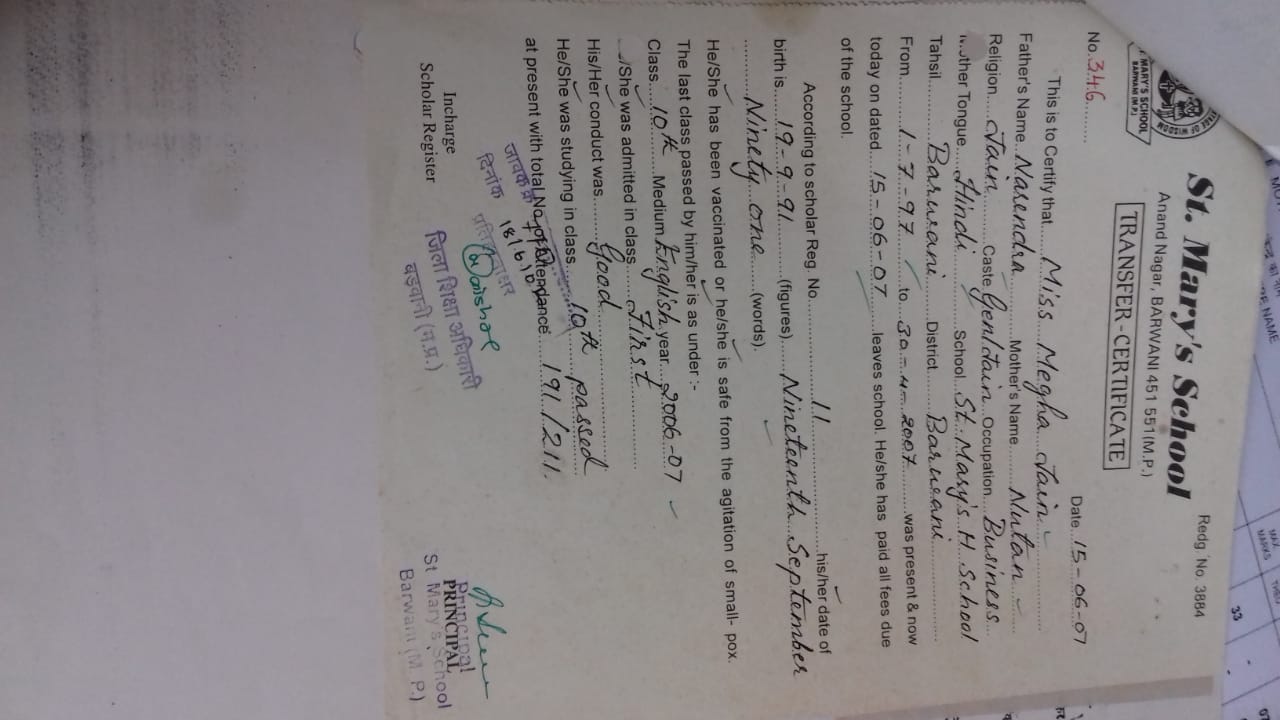 Redg. No. 3884
St. Mary's School
Anand Nagar, BARWANI 451 551(M.P.)
MARY'S SCHOOL
BARWANI (M.P.)
TRANSFER - CERTIFICATE
No. 346
Date. 15-06-07
This is to Certify that Miss Megha Jain
Father's Name Narendra Mother's Name Nutan
Religion Jain Caste Gen/Jain Occupation Business
Mother Tongue Hindi School St. Mary's H. School
Tahsil Barwani District Barwani
From 1-7-97 to 30-4-2007 was present & now
today on dated 15-06-07 leaves school. He/she has paid all fees due
of the school.
According to scholar Reg. No. 11 his/her date of
birth is 19-9-91 (figures) Nineteenth September
Ninety one (words).
He/She has been vaccinated or he/she is safe from the agitation of small-pox.
The last class passed by him/her is as under :-
Class 10th Medium English year 2006-07
/She was admitted in class First
His/Her conduct was Good
He/She was studying in class 10th passed
at present with total No. of Attendance 191/211.
जावक क्र.
दिनांक 18/6/0
जिला शिक्षा अधिकारी
बड़वानी (म.प्र.)
Incharge
Scholar Register
Principal
PRINCIPAL
St Mary's School
Barwani (M.P.)
NAME
MAX
MARKS
33